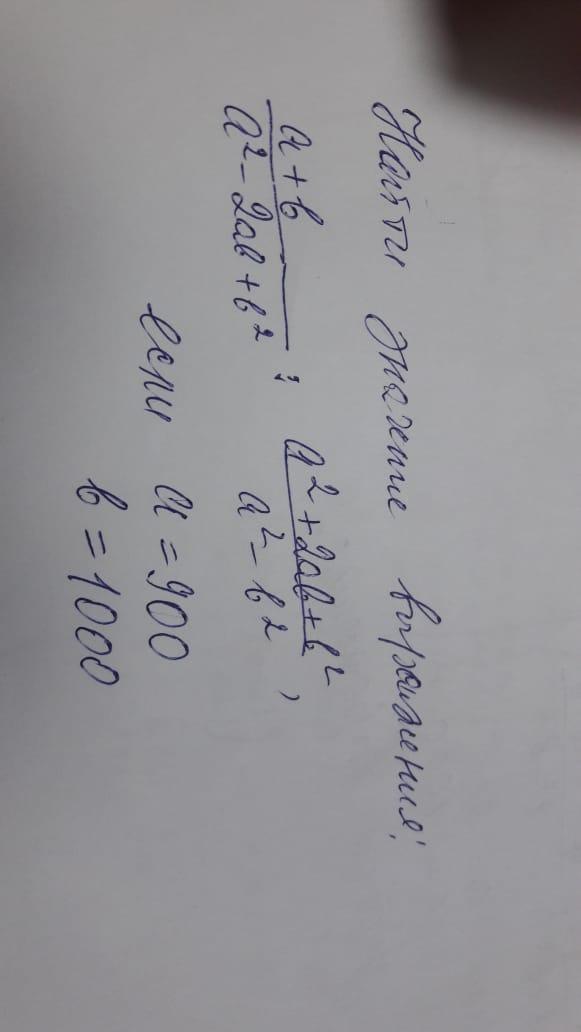 Найти значение выражения:
a+b / a²-2ab+b² : a²+2ab+b² / a²-b² ,
если a=900
b=1000